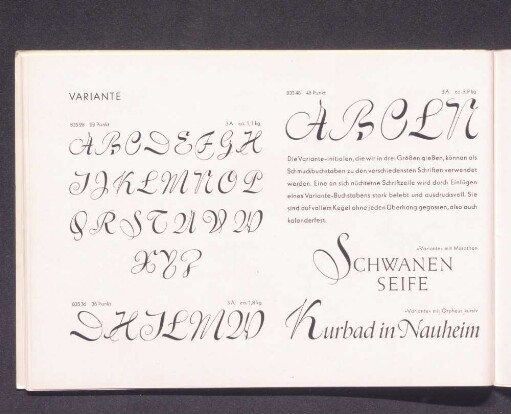 VARIANTE
3 A
ABCDEFGH
IJKLMNOP
QRSTUVW
XYZ
36 Punkt
3 A
DHILMW
48 Punkt
3 A
ABCLN
Die Variante-Initialen, die wir in drei Größen gießen, können als
Schmuckbuchstaben zu den verschiedensten Schriften verwendet
werden. Eine an sich nüchterne Schriftzeile wird durch Einfügen
eines Variante-Buchstabens stark belebt und ausdrucksvoll. Sie
sind auf vollem Kegel ohne jeden Überhang gegossen, also auch
kalanderfest.
»Variante« mit Marathon
SCHWANEN
SEIFE
»Variante« mit Orpheus kursiv
Kurbad in Nauheim